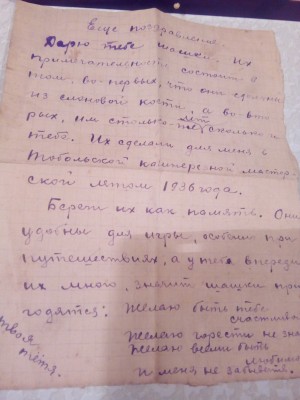 Еще поздравление
Дарю тебе шашки. Их
примечательность состоит в
том, во-первых, что они сделаны
из слоновой кости, а во-вто
рых, им столько лет сколько и
тебе. Их сделали для меня в
Тобольской косторезной мастер
ской летом 1936 года.
Береги их как память. Они
удобны для игры, особенно при
путешествиях, а у тебя впереди
их много, значит шашки при
годятся! Желаю быть тебе
счастливой
Желаю горести не знать
Желаю всеми быть
любимой
и меня не забывать.
твоя
тётя.